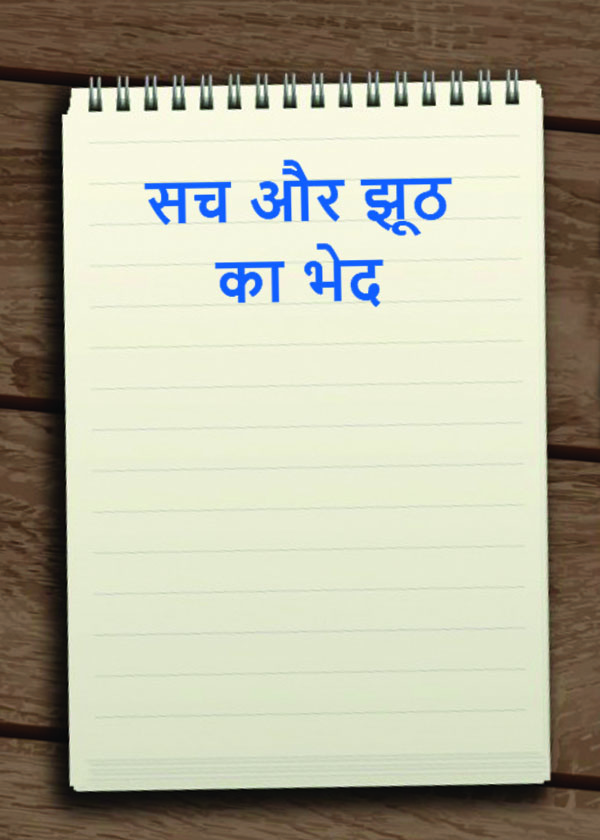 सच और झूठ
का भेद